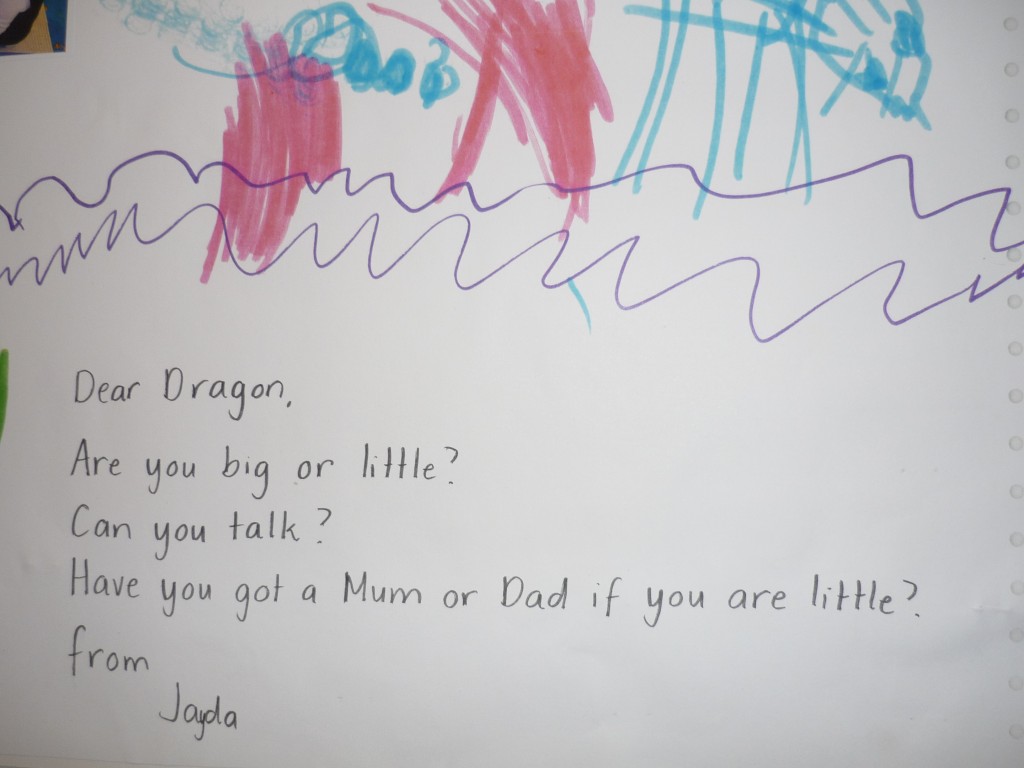 Dear Dragon,
Are you big or little?
Can you talk?
Have you got a Mum or Dad if you are little?
from
Jayda